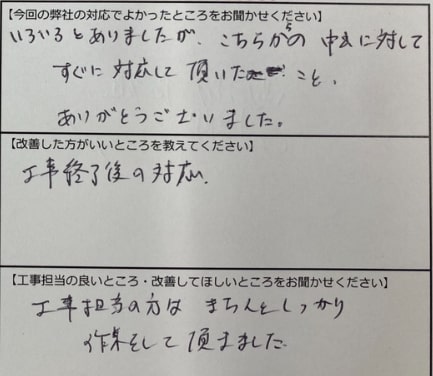 【今回の弊社の対応でよかったところをお聞かせください】
いろいろとありましたが、こちらからの申出に対して
すぐに対応して頂いた こと、
ありがとうございました。
【改善した方がいいところを教えてください】
工事終了後の対応、
【工事担当の良いところ・改善してほしいところをお聞かせください】
工事担当の方は きちんとしっかり
作業をして頂きました